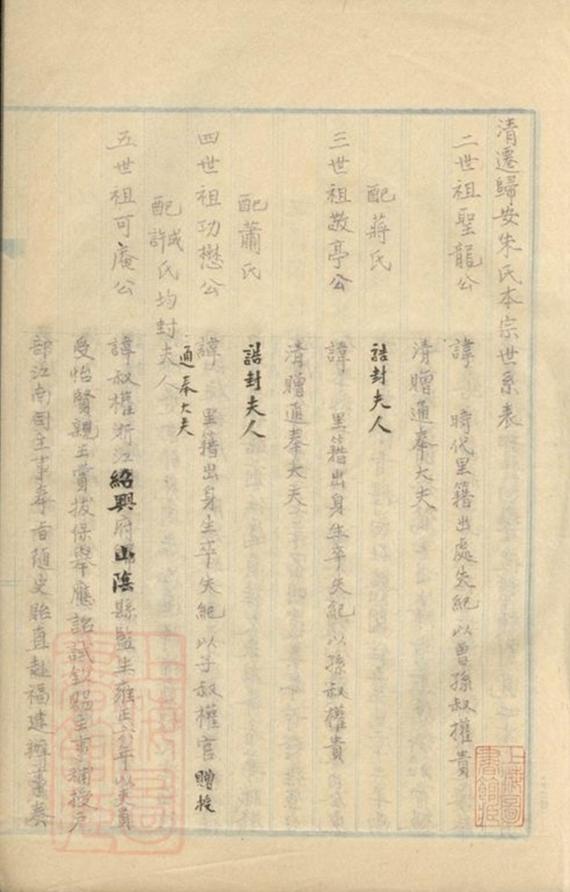 清遷歸安朱氏本宗世系表
二世祖聖龍公 諱 時代里籍出處失紀以曾孫叔權貴
清贈通奉大夫
配蔣氏 誥封夫人
三世祖敬亭公 諱 里籍出身生卒失紀以孫叔權貴
清贈通奉大夫
配蕭氏 誥封夫人
四世祖功懋公 諱 里籍出身生卒失紀以子叔權官贈授
通奉大夫
配 氏均封夫人
五世祖可庵公 諱叔權浙江紹興府山陰縣監生雍正 年以
受怡賢親王賞拔保舉應詔試欽賜主事補授戶
部江南司主事奉旨隨史貽直赴福建辦 奏
上海圖書館藏